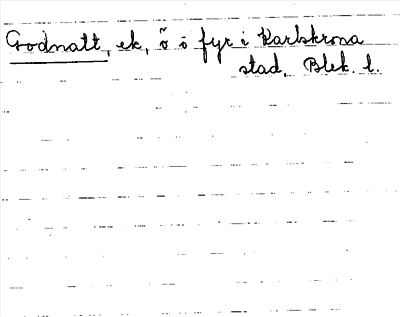 Godnatt, ek, õ ō fyr i Karlskrona
stad, Blek. l.